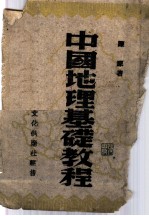 中國地理基礎教程
文化供應社印行